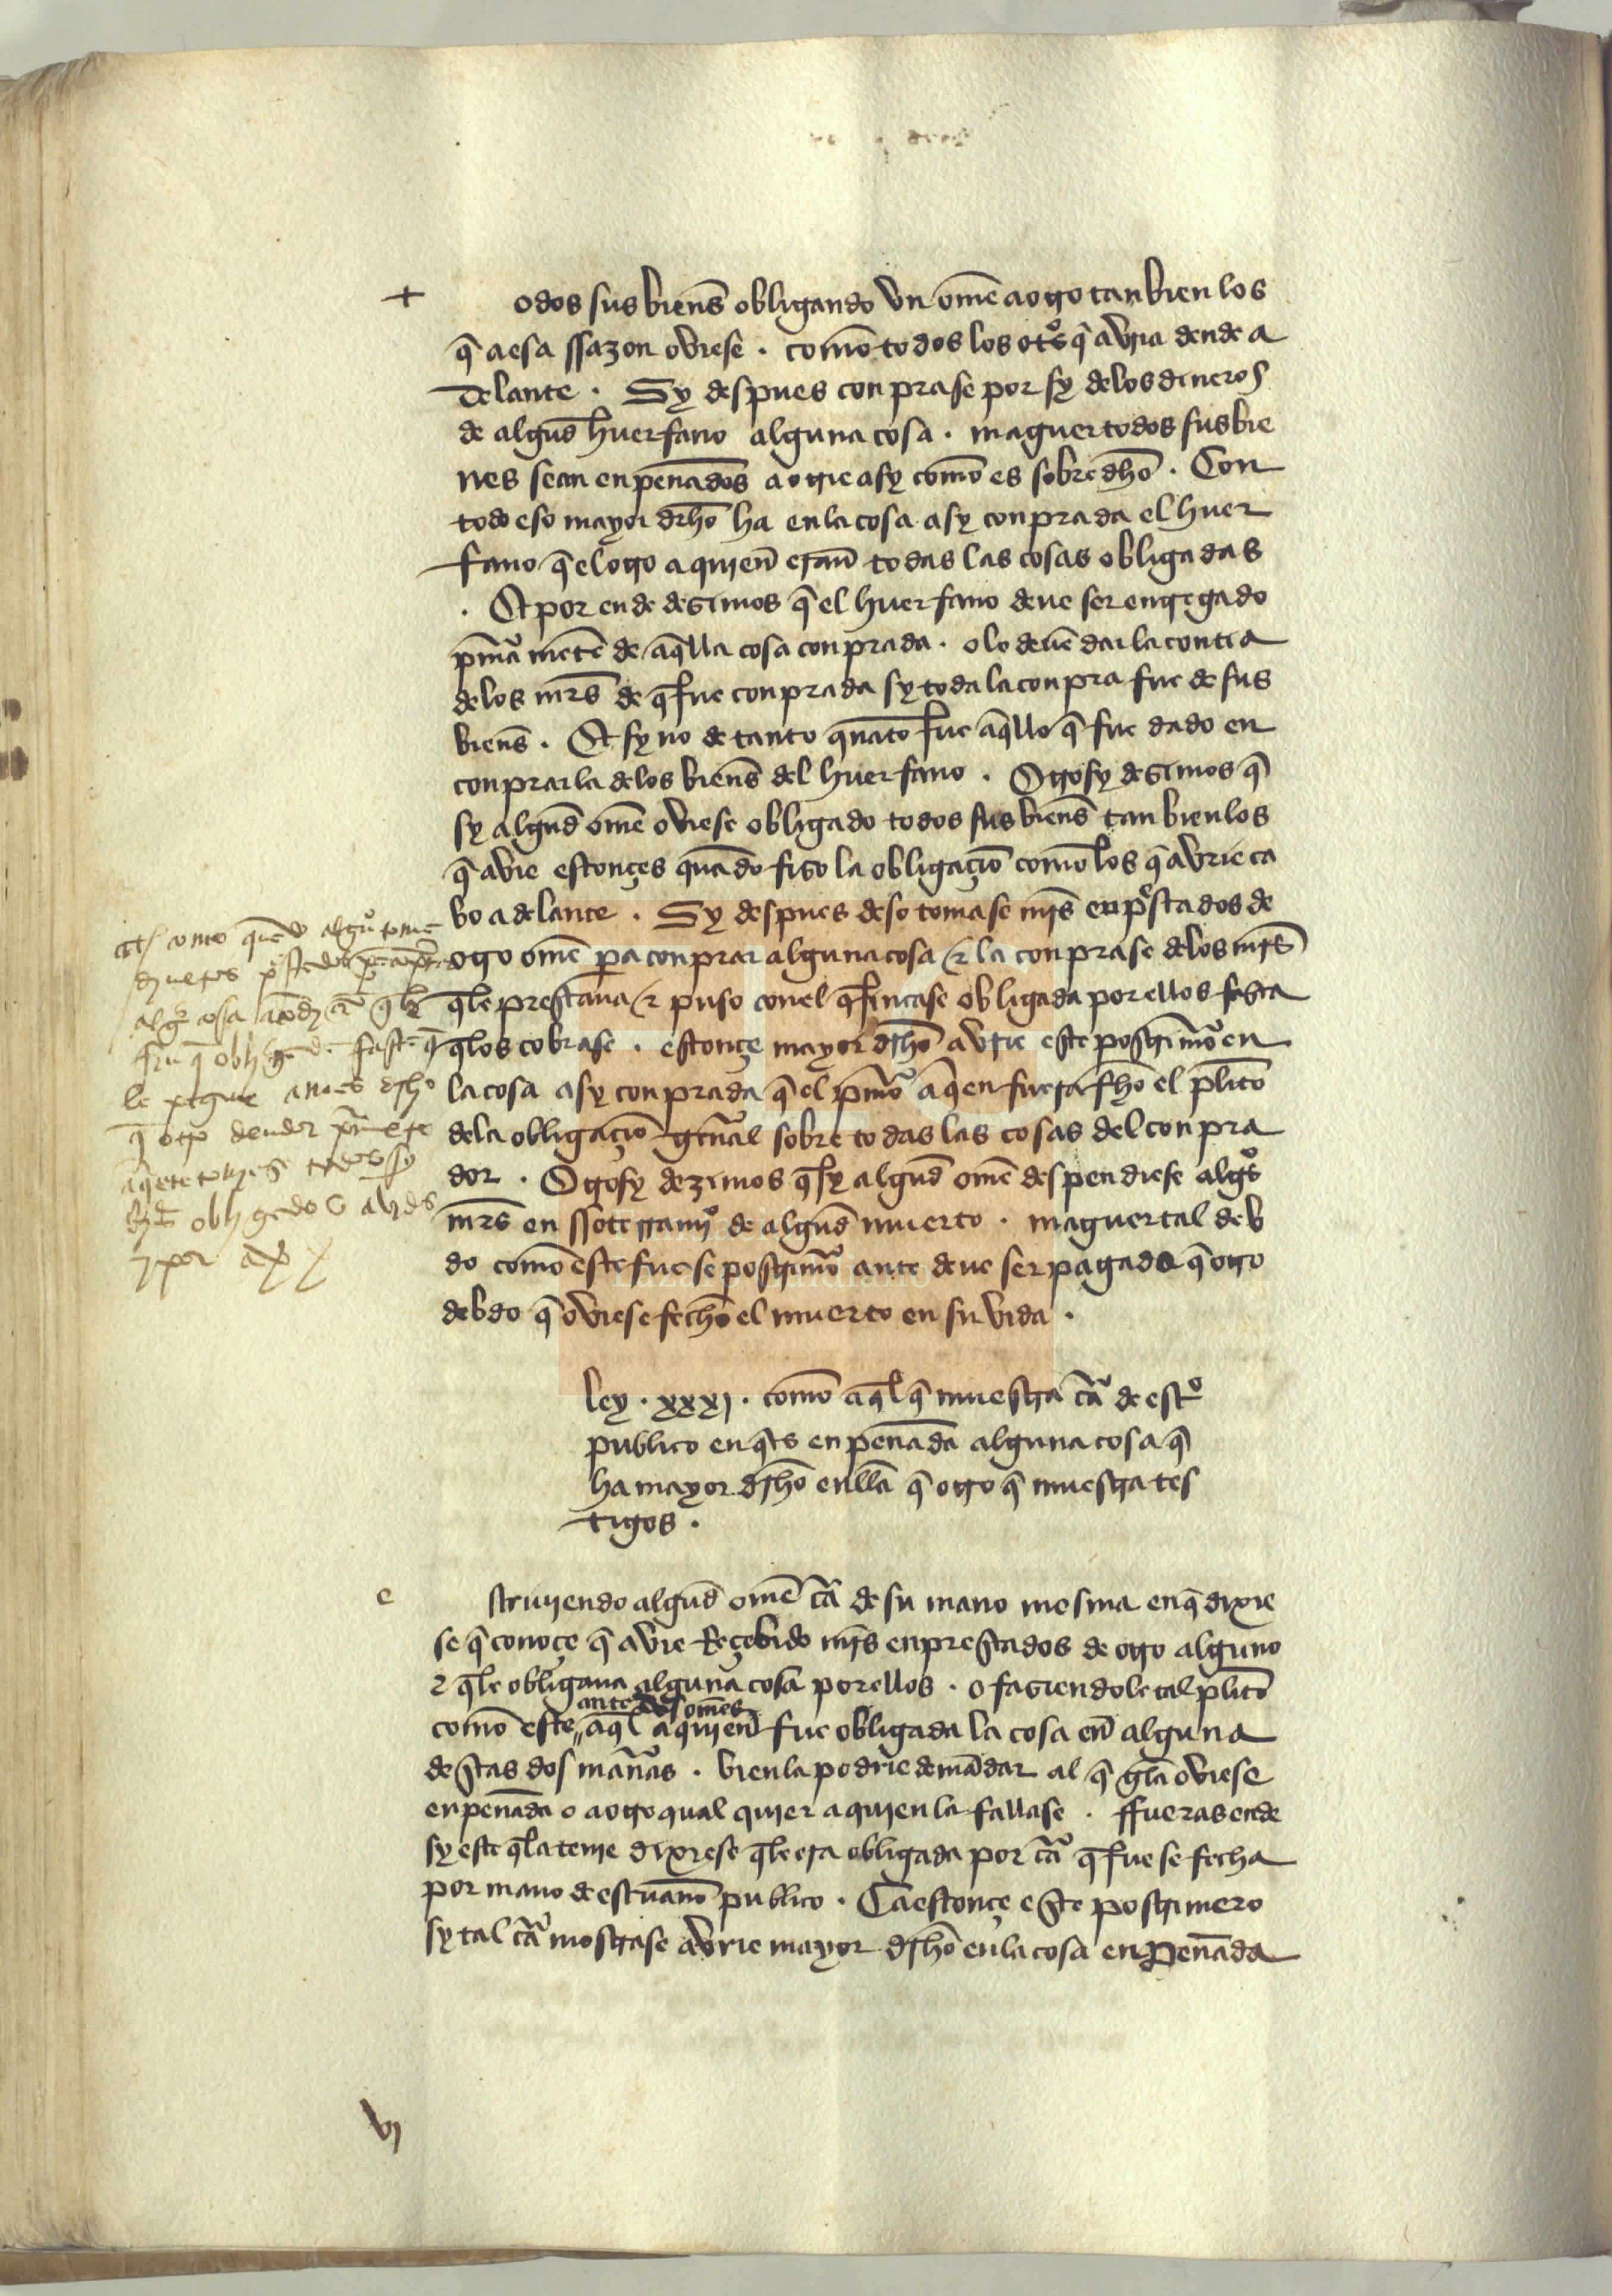 +
odos sus bienẽs obligando vn om̃e a otro tan bien los
q̃ a esa ssazon oviese . com̃o todos los otrºs q̃ avria dende a
delante . Sy despues conprase por sy de los dineros
de algũd huerfano alguna cosa . maguer todos sus bie
nes sean enpeñados a otrie asy com̃o es sobredh̃o . Con
todo eso mayor drh̃o ha en la cosa asy conprada el huer
fano q̃ el otro a quien̄ eran̄ todas las cosas obligadas
. Et por ende desimos q̃ el huerfano deue ser entregado
pm̃a mẽte de aq̃lla cosa conprada . o lo deuẽ dar la contia
de los mrs̃ de q̃ fue conprada sy toda la conpra fue de sus
bienẽs . Et sy no de tanto quãto fue aq̃llo q̃ fue dado en
conprarla de los bienẽs del huerfano . Otrosy desimos q̃
sy algũd om̃e oviese obligado todos sus bienẽs tan bien los
q̃ avie estonçes quãdo fiso la obligaçiõ com̃o los q̃ avrie ca
bo adelante . Sy despues deso tomase mrs̃ enpˢstados de
otro om̃e pa conprar alguna cosa & la conprase de los mrs̃
q̃le prestaua & puso con el q̃ fincase obligada por ellos fasta
q̃ los cobrase . estonçe mayor drh̃o avrie este postrimºo en
la cosa asy conprada q̃ el pm̃o a q̃en fuera fh̃o el pl̃ito
de la obligaçiõ gen̄al sobre todas las cosas del conpra
dor . Otrosy dezimos q̃ sy algũd om̃e despendiese algºs
mrs̃ en ssoterramjº de algũd muerto . maguer tal deb
do com̃o este fuese postrimºo ante deue ser pagado q̃ otro
debdo q̃ oviese fecho el muerto en su vida .
ley . xxxj . com̃o aq̃l q̃ muestra cã de estº
publico en q̃ es enpeñada alguna cosa q̃
ha mayor drh̃o en ella q̃ otro q̃ muestra tes
tigos .
e
scriujendo algũd om̃e cã de su mano mesma en q̃ dixie
se q̃ conoçe q̃ avie Reçebido mrs̃ enprestados de otro alguno
& q̃le obligaua alguna cosa por ellos . o fasiendole tal pl̃ito
ante dos om̃es
com̃o este aq̃l a quien fue obligada la cosa en̄ alguna
destas dos mañas . bien la podrie demãdar al q̃ gela oviese
enpeñada o a otro qual quier a quien la fallase . ffueras ende
sy este q̃ la tenie dixiese q̃le era obligada por cã q̃ fuese fecha
por mano de escriuano publico . Ca estonçe este postrimero
sy tal cã mostrase avrie mayor drh̃o en la cosa enpeñada
vj